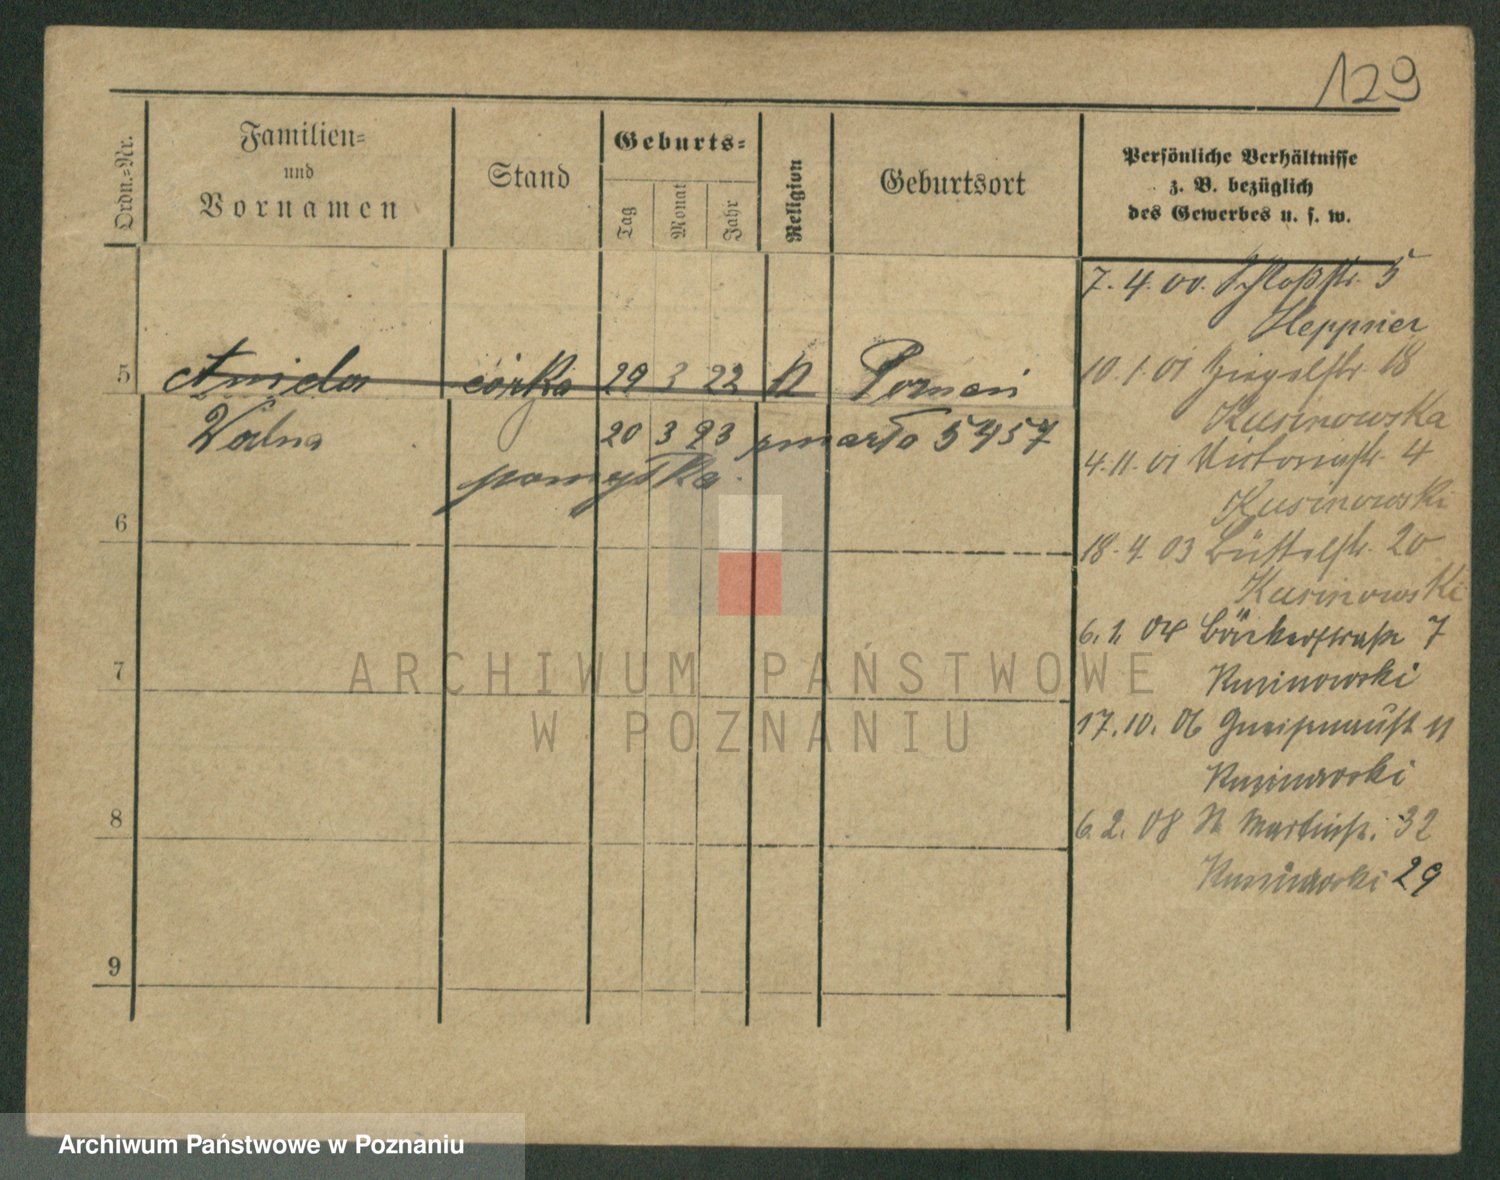 129
Ordn.-Nr.
Familien-
und
Vornamen
Stand
Geburts-
Tag
Monat
Jahr
Religion
Geburtsort
Persönliche Verhältnisse
z. B. bezüglich
des Gewerbes u. s. w.
5
córka 29 3 22 Poznań
20 3 23 zmarło 5457
pomyłka
6
7
8
9
7. 4. 00. Schloßstr. 5
Heppner
10. 1. 01 Ziegelstr. 18
Kusinowska
4. 11. 01 Victoriastr. 4
Kusinowski
18. 4. 03 Büttelstr. 20
Kusinowski
6. 1. 04 Bäckerstraße 7
Kusinowski
17. 10. 06 Gneisenaustr. 11
Kusinowski
6. 2. 08 St Martinstr. 32
Kusinowski 29
ARCHIWUM PAŃSTWOWE
W POZNANIU
Archiwum Państwowe w Poznaniu